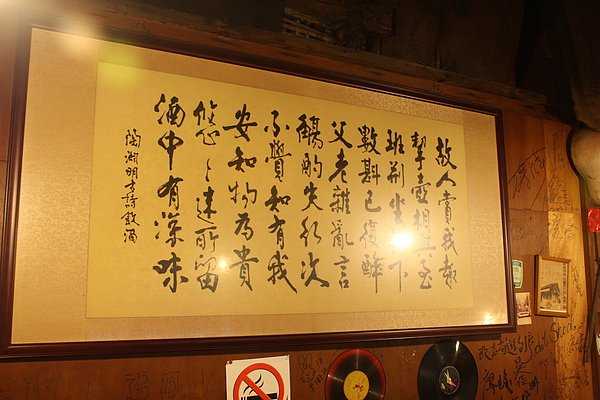 故人賞我趣
挈壺相與至
班荊坐松下
數斟已復醉
父老雜亂言
觴酌失行次
不覺知有我
安知物為貴
悠〻迷所留
酒中有深味
陶淵明古詩飲酒